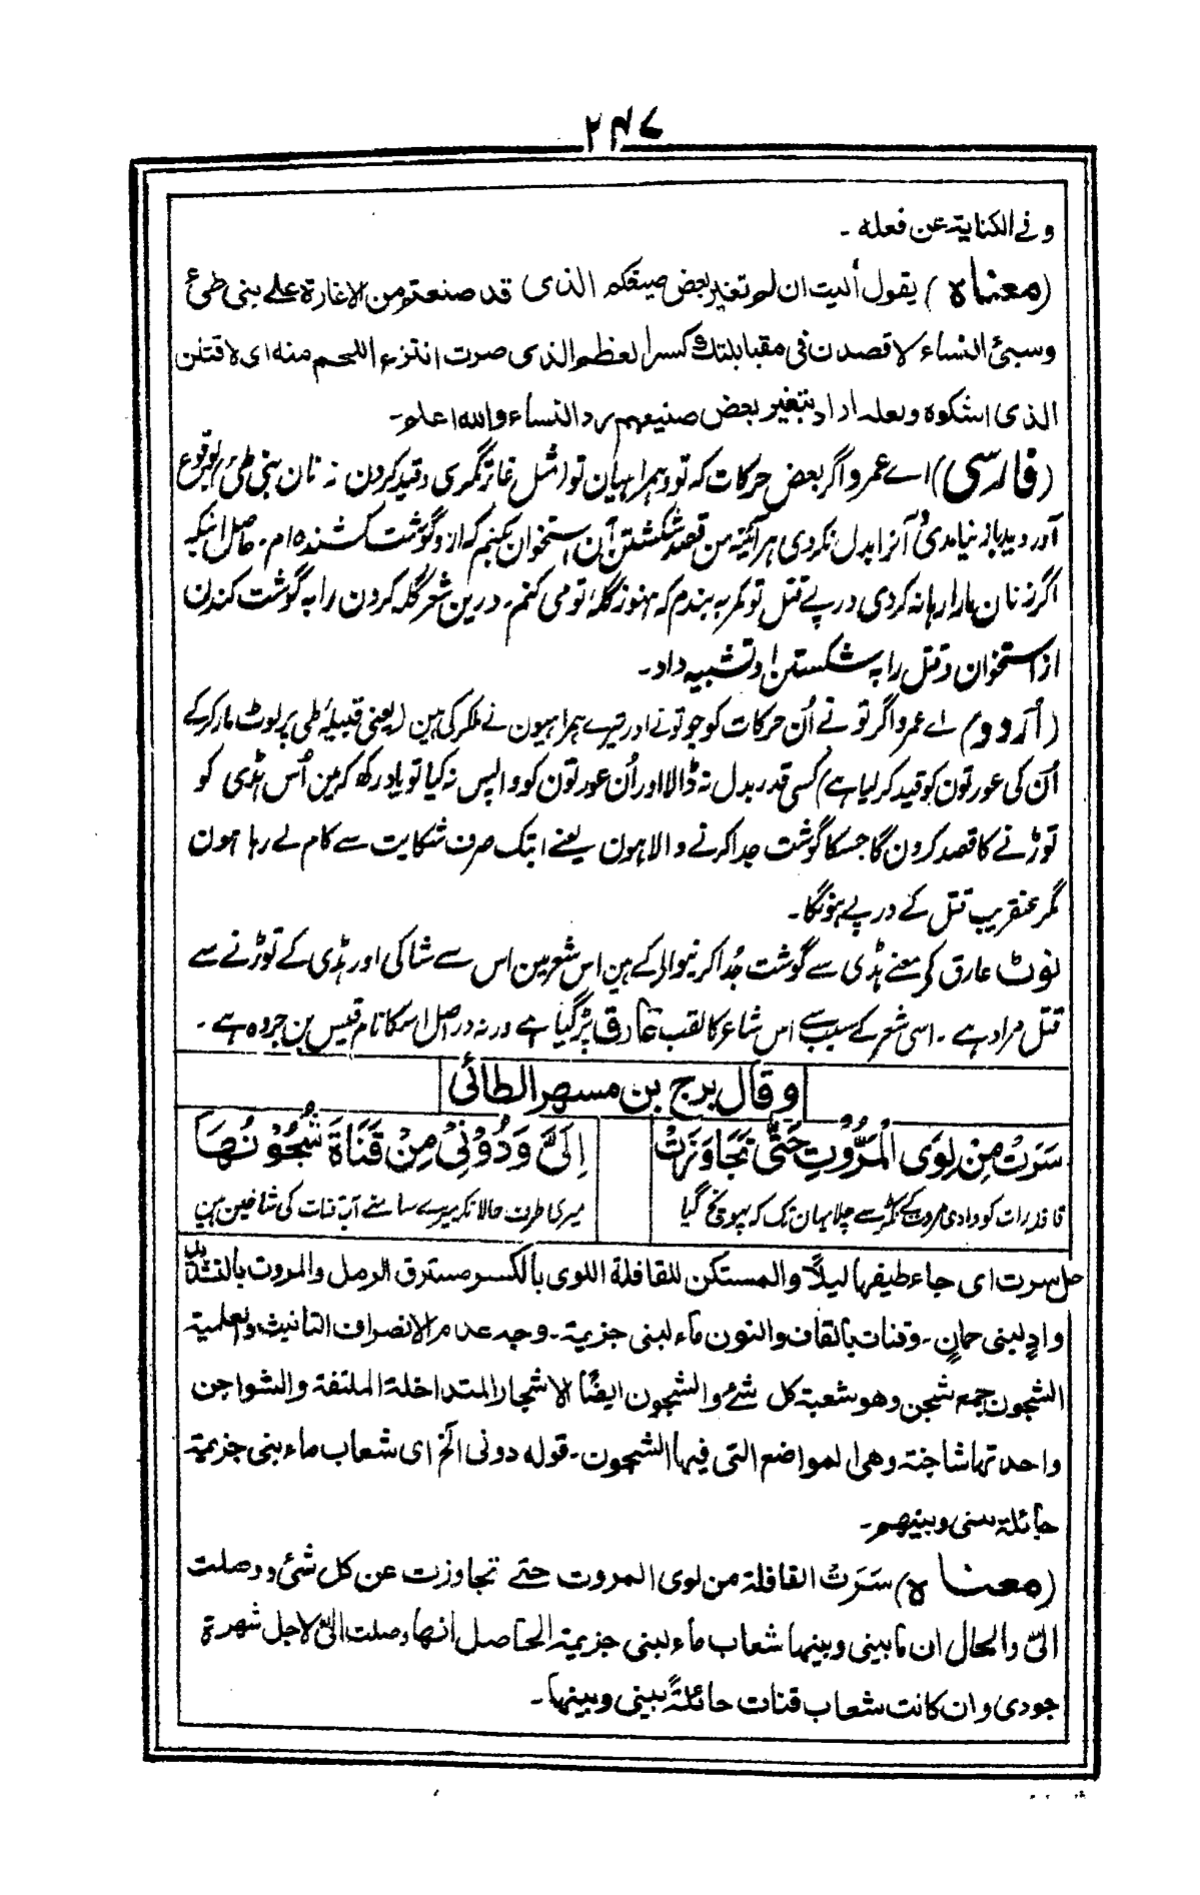 ۲۴۷
وفی الکنایۃ عن فعلہ ۔
(معناہ) یقول اٰلیت ان لم تغیر بعض صنیعکم الذی قد صنعتم من الاغارۃ علے بنی طیٔ
وسبیٔ النساء لاقصدن فی مقابلتك کسر العظم الذی صرت انتزع اللحم منہ ای لاقتلن
الذی اشکوہ ولعلہ اراد بتغیر بعض صنیعہم رد النساء واللہ اعلم ۔
(فارسی) اے عمرو اگر بعض حرکات کہ تو و ہمراہیان تو از مثل غارتگری و قید کردن زنان بنی طیٔ بوقوع
آوردید باز نیامدی و آنرا بدل نکردی ہر آئینہ من قصد شکستن آن استخوان بکنم کہ از و گوشت کشندہ ام ۔ حاصل اینکہ
اگر زنان مارا رہا نہ کردی در پے قتل تو کمر بہ بندم کہ ہنوز گلۂ تو می کنم ۔ درین شعر گلہ کردن را بہ گوشت کندن
از استخوان و قتل را بہ شکستن او تشبیہ داد ۔
(اُردو) اے عمرو اگر تو نے اُن حرکات کو جو تونے اور تیرے ہمراہیون نے ملکر کی ہین (یعنی قبیلۂ طی پر لوٹ مار کرکے
اُن کی عورتون کو قید کر لیا ہے) کسی قدر بدل نہ ڈالا اور اُن عورتون کو واپس نہ کیا تو یاد رکھ کہ مین اُس ہڈی کو
توڑنے کا قصد کرون گا جسکا گوشت جدا کرنے والا ہون یعنے ابتک صرف شکایت سے کام لے رہا ہون
مگر عنقریب قتل کے در پے ہونگا ۔
نوٹ عارق کے معنے ہڈی سے گوشت جُدا کرنیوالے کے ہین اس شعر مین اس سے شاکی اور ہڈی کے توڑنے سے
قتل مراد ہے ۔ اسی شعر کے سبب سے اس شاعر کا لقب عارق پڑ گیا ہے ورنہ در اصل اسکا نام قیس بن جروہ ہے ۔
وقال برج بن مسہر الطائی
سَرَتْ مِنْ لِوَی الْمَرُّوْتِ حَتّٰی تَجَاوَزَتْ اِلَیَّ وَدُوْنِیْ مِنْ قَنَاۃَ شُجُوْنُهَا
قافلہ رات کو وادی مروت کے ٹکڑے سے چلا یہان تک کہ پہونچ گیا میری طرف حالانکہ میرے سامنے آب قنات کی شاخین ہین
حل سرت ای جاء طیفہا لیلًا والمستکن للقافلۃ اللوی بالکسر مسترق الرمل والمروت بالتشدید
وادٍ لبنی حمانٍ ۔ وقنات بالقاف والنون ماء لبنی جزیمۃ ۔ وجہ عدم الانصراف التانیث والعلمیۃ
الشجون جمع شجن وھو شعبۃ کل شیٔ والشجون ایضًا الاشجار المتداخلۃ الملتفۃ والشواجن
واحدتہا شاجنۃ وھی المواضع التی فیہا الشجون ۔ قولہ دونی الخ ای شعاب ماء بنی جزیمۃ
حائلۃ بینی وبینہم ۔
(معناہ) سَرَتْ القافلۃ من لوی المروت حتے تجاوزت عن کل شیٔ ووصلت
الیّ والحال ان مابینی وبینہا شعاب ماء لبنی جزیمۃ الحاصل انہا وصلت الیّ لاجل شہرۃ
جودی وان کانت شعاب قنات حائلۃً بینی وبینہا ۔